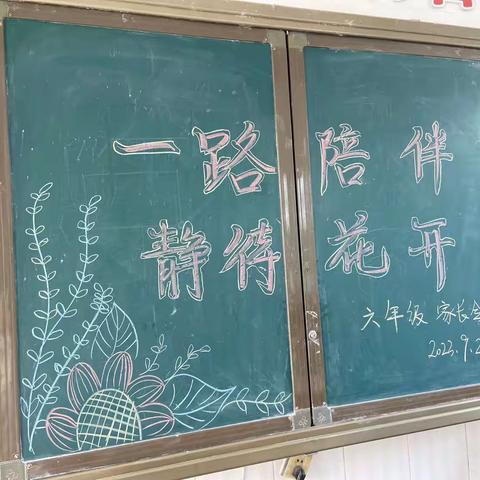 一路陪伴
静待花开
六年级 家长会
2023.9.2